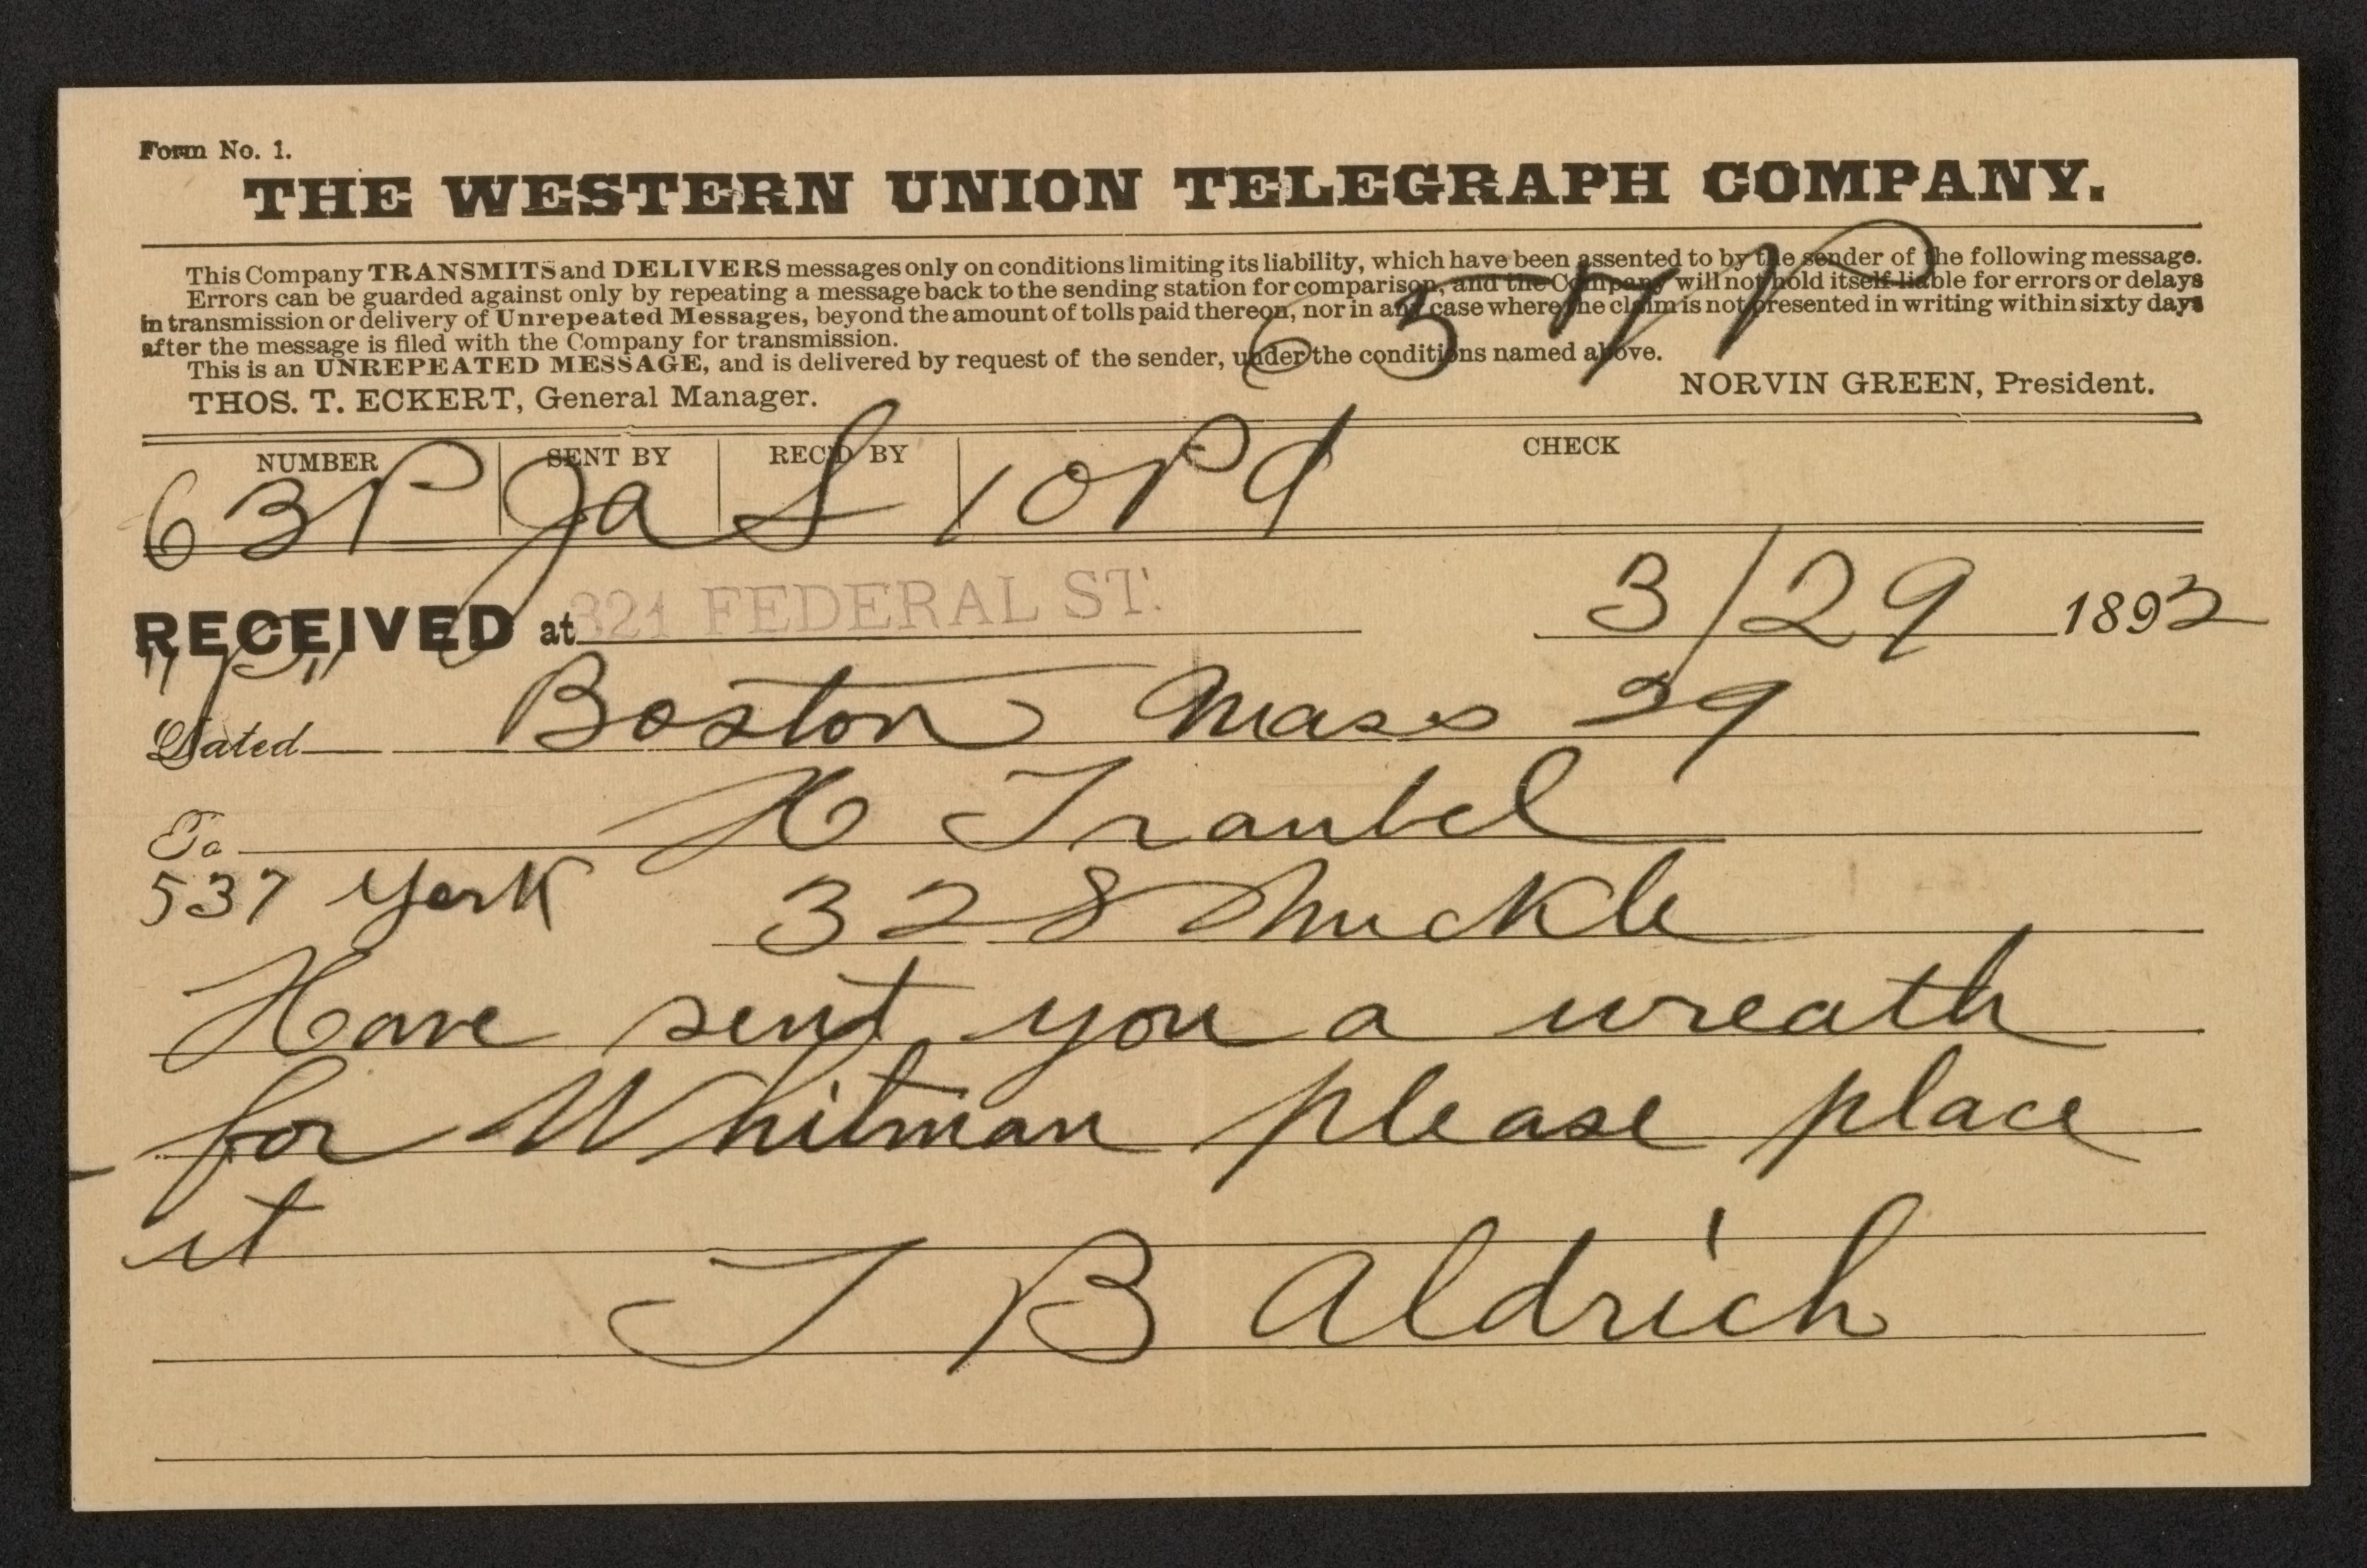 Form No. 1.
THE WESTERN UNION TELEGRAPH COMPANY.
This Company TRANSMITS and DELIVERS messages only on conditions limiting its liability, which have been assented to by the sender of the following message.
Errors can be guarded against only by repeating a message back to the sending station for comparison, and the Company will not hold itself liable for errors or delays
in transmission or delivery of Unrepeated Messages, beyond the amount of tolls paid thereon, nor in any case where the claim is not presented in writing within sixty days
after the message is filed with the Company for transmission.
This is an UNREPEATED MESSAGE, and is delivered by request of the sender, under the conditions named above.
THOS. T. ECKERT, General Manager. NORVIN GREEN, President.
NUMBER SENT BY REC'D BY CHECK
63P Ja S 10 Pd
RECEIVED at 321 FEDERAL ST. 3/29 1892
"P"
Dated Boston Mass 29
To H Traubel
537 York 328 Mickle
Have sent you a wreath
for Whitman please place
it
T B Aldrich